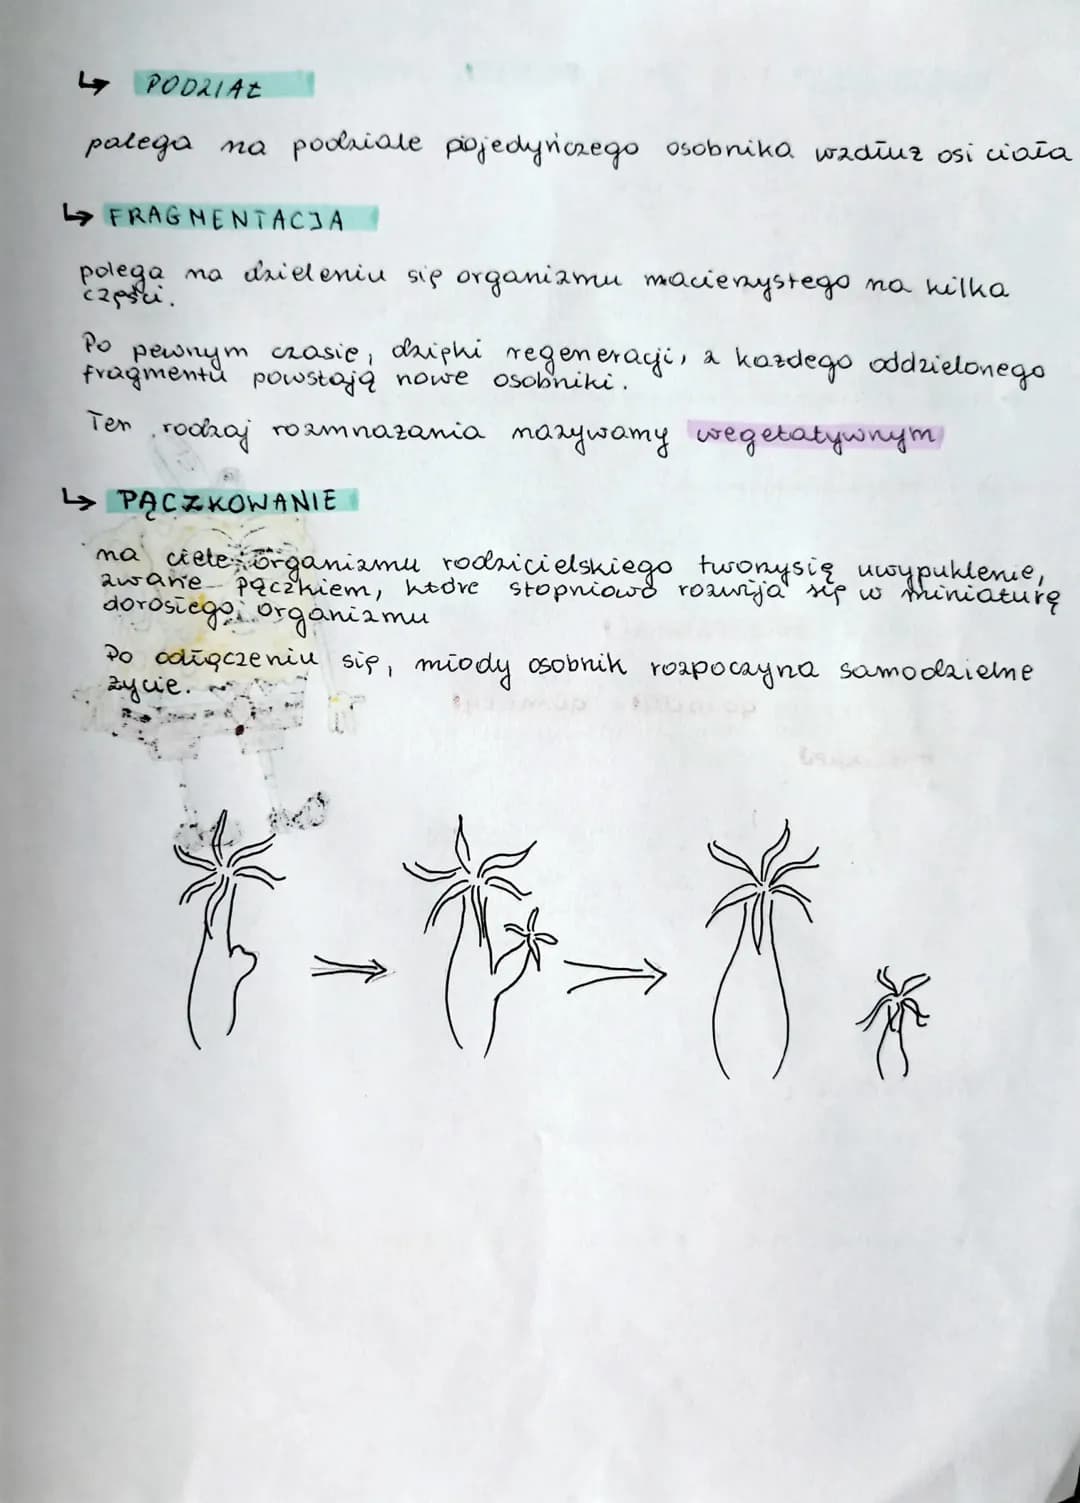 ↳ PODZIAŁ
polega na podziale pojedyńczego osobnika wzdłuż osi ciała
↳ FRAGMENTACJA
polega na dzieleniu się organizmu macierzystego na kilka
części.
Po pewnym czasie, dzięki regeneracji, z każdego oddzielonego
fragmentu powstają nowe osobniki.
Ten rodzaj rozmnażania nazywamy wegetatywnym
↳ PĄCZKOWANIE
na ciele organizmu rodzicielskiego tworzy się uwypuklenie,
zwane pączkiem, które stopniowo rozwija się w miniaturę
dorosłego organizmu
Po odłączeniu się, młody osobnik rozpoczyna samodzielne
życie.